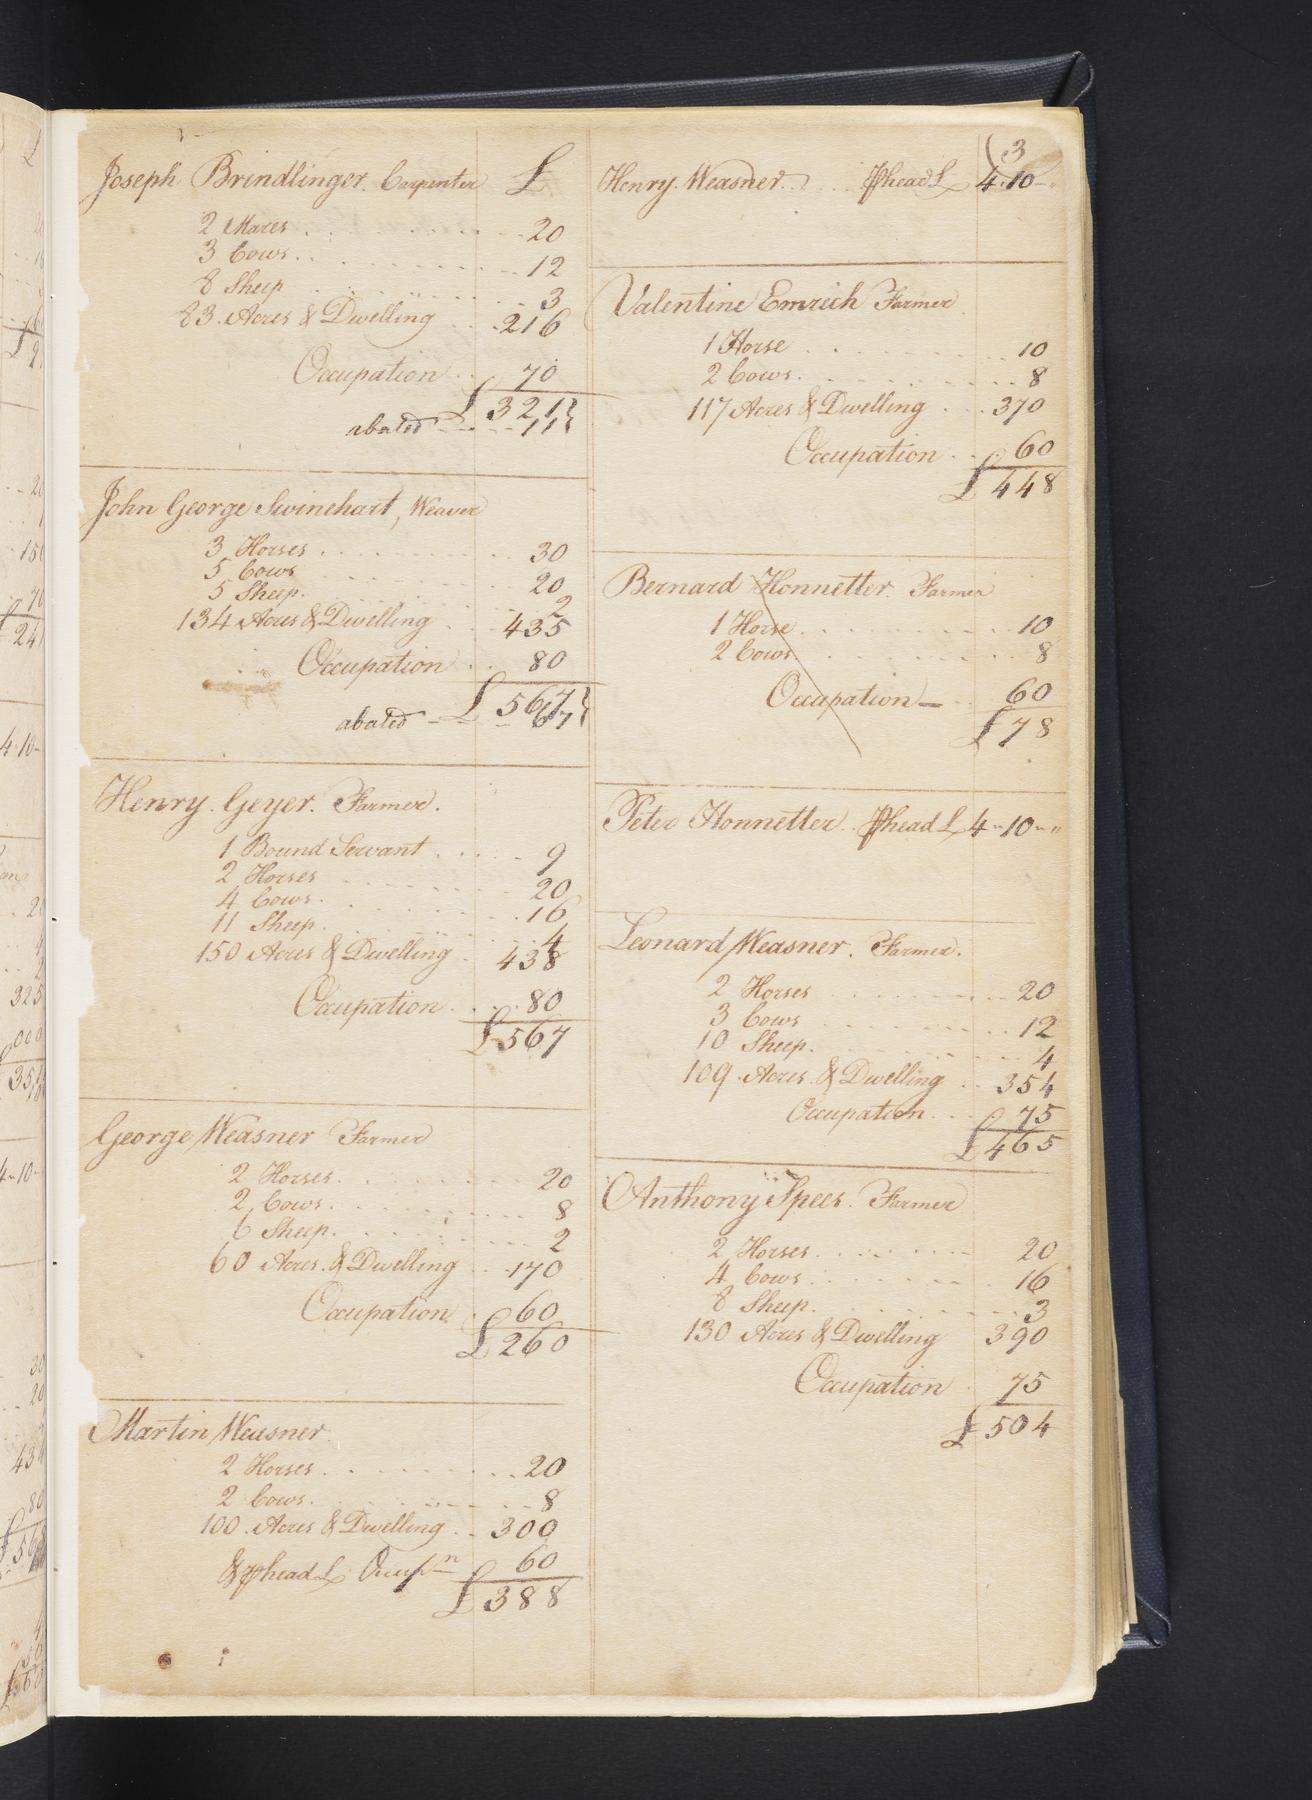 Joseph Brindlinger. Carpenter £
2 Mares 20
3 Cows 12
8 Sheep 3
83 Acres & Dwelling 216
Occupation 70
£ 321
abated 11
John George Swinehart, Weaver
3 Horses 30
5 Cows 20
5 Sheep 2
134 Acres & Dwelling 435
Occupation 80
£ 567
abated 67
Henry Geyer. Farmer.
1 Bound Servant 9
2 Horses 20
4 Cows 16
11 Sheep 4
150 Acres & Dwelling 438
Occupation 80
£ 567
George Weasner Farmer
2 Horses 20
2 Cows 8
6 Sheep 2
60 Acres & Dwelling 170
Occupation 60
£ 260
Martin Weasner
2 Horses 20
2 Cows 8
100 Acres & Dwelling 300
& phead £ Occupn 60
£ 388
(3
Henry Weasner phead £ 4-10-
Valentine Emrich Farmer
1 Horse 10
2 Cows 8
117 Acres & Dwelling 370
Occupation 60
£ 448
Bernard Honnetter. Farmer
1 Horse 10
2 Cows 8
Occupation 60
£ 78
Peter Honnetter phead £ 4-10-"
Leonard Weasner. Farmer.
2 Horses 20
3 Cows 12
10 Sheep 4
109 Acres & Dwelling 354
Occupation 75
£ 465
Anthony Spees. Farmer
2 Horses 20
4 Cows 16
8 Sheep 3
130 Acres & Dwelling 390
Occupation 75
£ 504